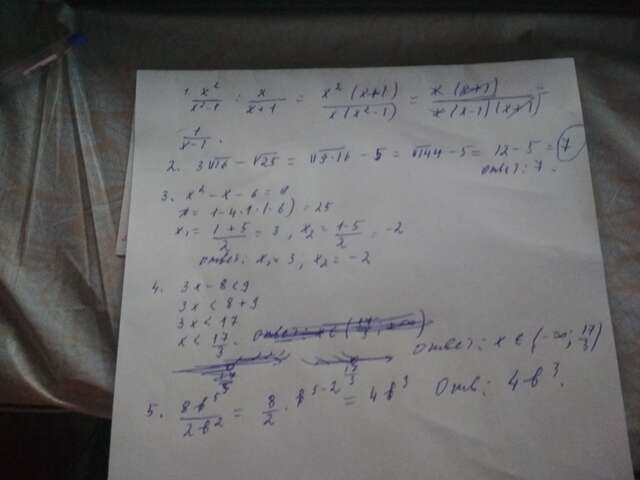 1. x²/(x²-1) : x/(x+1) = x²(x+1)/(x(x²-1)) = x(x+1)/(x(x-1)(x+1)) =
1/(x-1).
2. 3√16 - √25 = √9·16 - 5 = √144 - 5 = 12 - 5 = 7
ответ: 7.
3. x² - x - 6 = 0
D = 1-4·1·(-6) = 25
x₁ = (1+5)/2 = 3, x₂ = (1-5)/2 = -2
ответ: x₁ = 3, x₂ = -2
4. 3x - 8 < 9
3x < 8+9
3x < 17
x < 17/3. ответ: x ∈ (-∞; 17/3)
17/3 17/3
5. 8b⁵/2b² = 8/2 · b⁵⁻² = 4b³ Отв: 4b³.